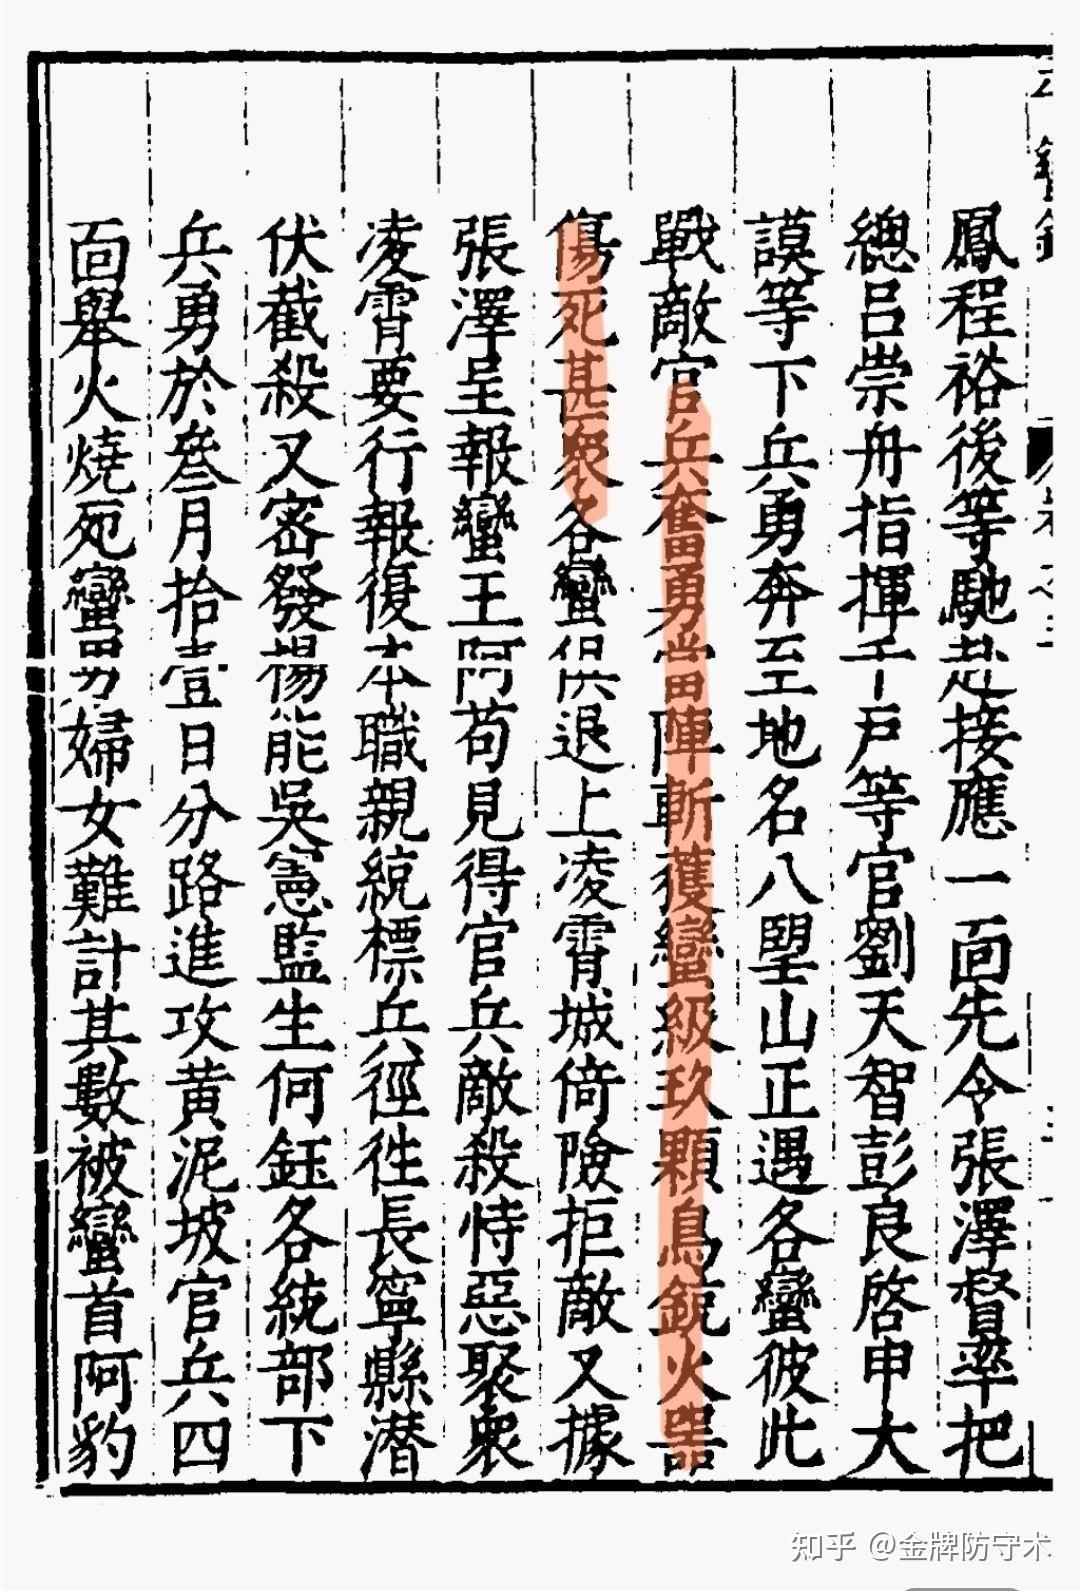 鳳程裕後等馳赴接應一面先令張澤督率把
總呂崇舟指揮千戶等官劉天智彭良啓申大
謨等下兵勇奔至地名八望山正遇各蠻彼此
戰敵官兵奮勇當陣斬獲蠻級玖顆鳥銃火器
傷死甚衆各蠻俱退上凌霄城倚險拒敵又據
張澤呈報蠻王阿苟見得官兵敵殺恃惡聚衆
凌霄要行報復本職親統標兵徑徃長寧縣潜
伏截殺又密發楊能吳憲監生何鈺各統部下
兵勇於叄月拾壹日分路進攻黄泥坡官兵四
面舉火燒死蠻男婦女難計其數被蠻首阿豹
知乎 @金牌防守术